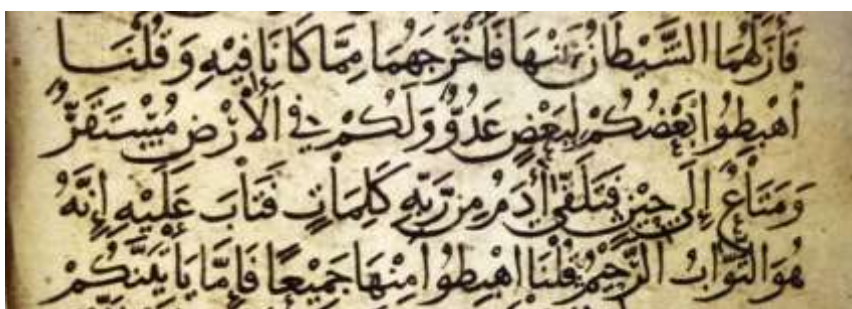 فَأَزَلَّهُمَا الشَّيْطَانُ عَنْهَا فَأَخْرَجَهُمَا مِمَّا كَانَا فِيْهِ وَقُلْنَا
اهْبِطُوا بَعْضُكُمْ لِبَعْضٍ عَدُوٌّ وَلَكُمْ فِي الْأَرْضِ مُسْتَقَرٌّ
وَمَتَاعٌ إِلَى حِيْنٍ فَتَلَقَّى أَدَمُ مِن رَّبِّهِ كَلِمَاتٍ فَتَابَ عَلَيْهِ إِنَّهُ
هُوَ التَّوَّابُ الرَّحِيْمُ قُلْنَا اهْبِطُوا مِنْهَا جَمِيْعًا فَإِمَّا يَأْتِيَنَّكُمْ